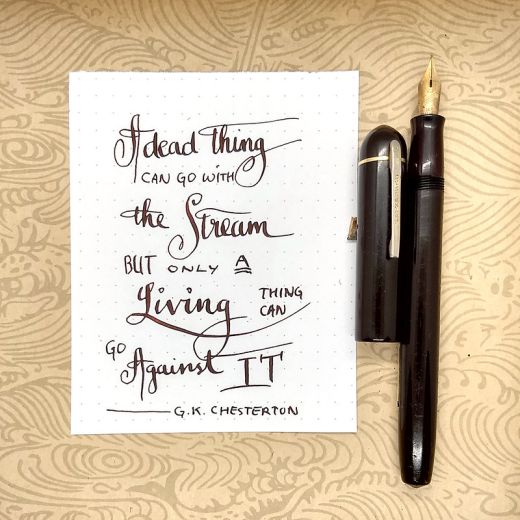 A dead Thing
CAN GO WITH
the Stream
BUT ONLY A
Living THING CAN
GO Against IT
G.K. CHESTERTON